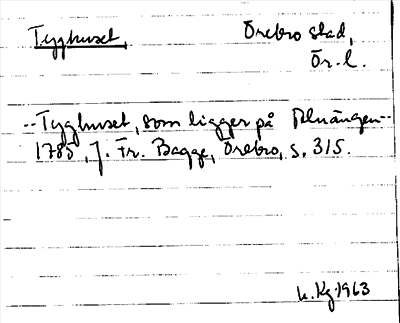 Tyghuset, Örebro stad,
Ör. l.
-- Tyghuset, som ligger på Alnängen --
1785, J. Fr. Bagge, Örebro, s. 315.
h. Kg 1963